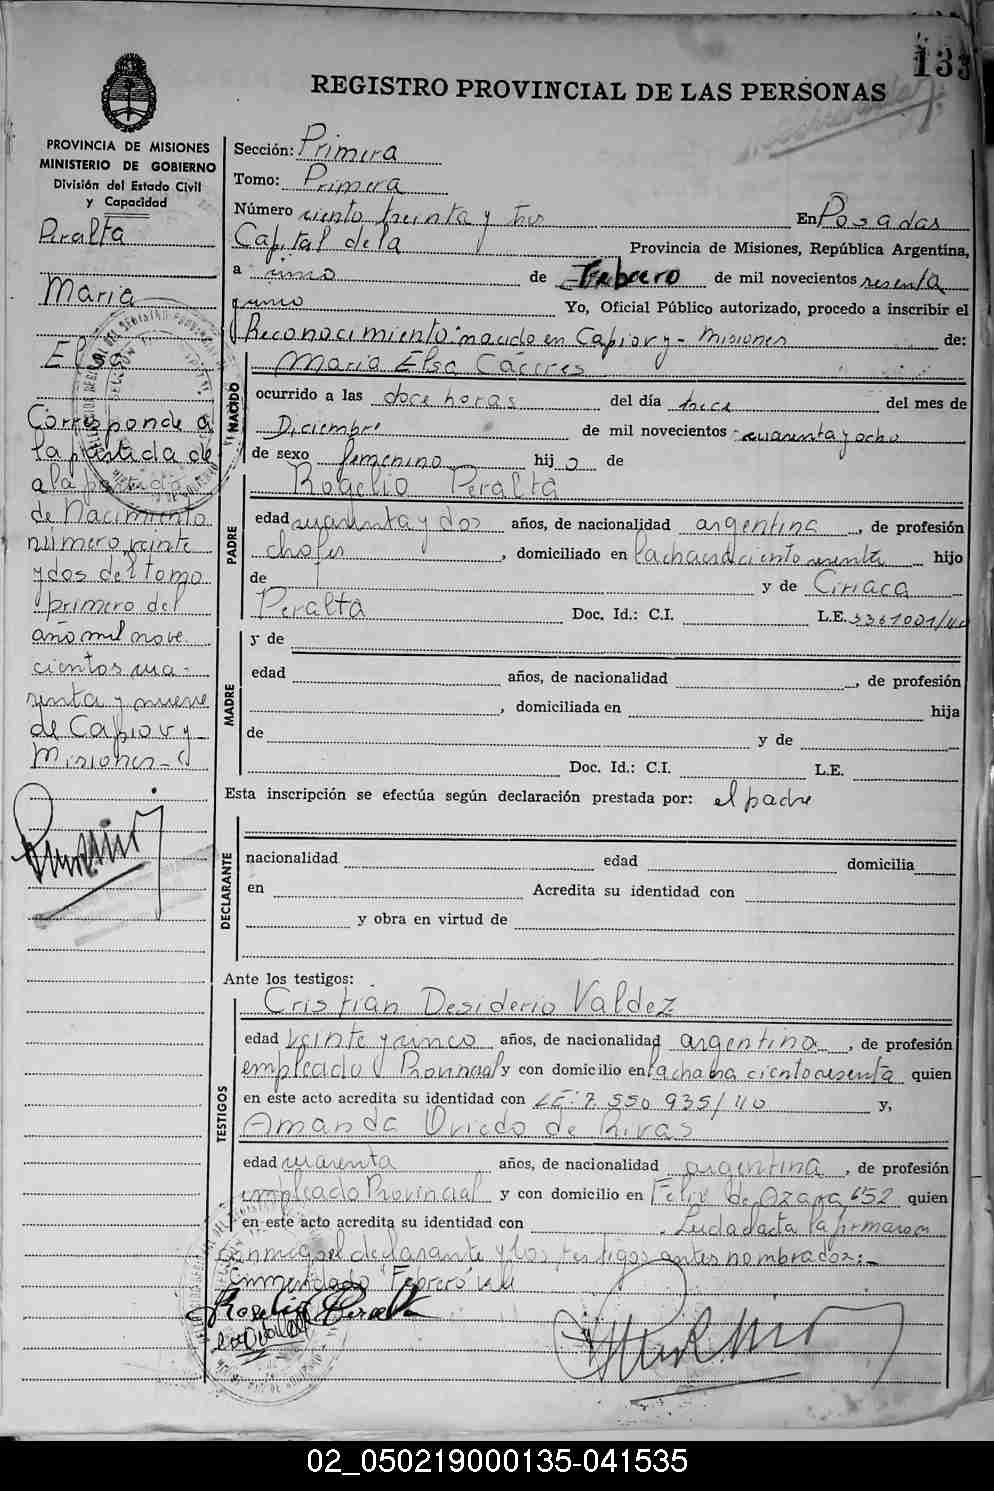 133
REGISTRO PROVINCIAL DE LAS PERSONAS
PROVINCIA DE MISIONES
MINISTERIO DE GOBIERNO
División del Estado Civil
y Capacidad
Peralta
Maria
Elsa
Corresponde a
la partida de
a la partida
de Nacimiento
número veinte
y dos del tomo
primero del
año mil nove
cientos cua-
renta y nueve
de Capiovy-
Misiones-
Sección: Primera
Tomo: Primera
Número ciento treinta y tres En Posadas
Capital de la Provincia de Misiones, República Argentina,
a uno de Febrero de mil novecientos sesenta
y uno Yo, Oficial Público autorizado, procedo a inscribir el
Reconocimiento: nacido en Capiovy - Misiones de:
NACIDO
Maria Elsa Cáceres
ocurrido a las doce horas del día trece del mes de
Diciembre de mil novecientos cuarenta y ocho
de sexo femenino hij o de
PADRE
Rogelio Peralta
edad cuarenta y dos años, de nacionalidad argentina, de profesión
chofer, domiciliado en la chacra ciento sesenta hijo
de y de Ciriaca
Peralta Doc. Id.: C.I. L.E. 3361001/40
MADRE
y de
edad años, de nacionalidad , de profesión
, domiciliada en hija
de y de
Doc. Id.: C.I. L.E.
Esta inscripción se efectúa según declaración prestada por: el padre
DECLARANTE
nacionalidad edad domicilia
en Acredita su identidad con
y obra en virtud de
Ante los testigos:
TESTIGOS
Cristian Desiderio Valdez
edad veinte y cinco años, de nacionalidad argentina, de profesión
empleado Provincial y con domicilio en la chacra ciento sesenta quien
en este acto acredita su identidad con LE: 7.550 935/40 y,
Amanda Oviedo de Rivas
edad cuarenta años, de nacionalidad argentina, de profesión
empleado Provincial y con domicilio en Felix de Azara 652 quien
en este acto acredita su identidad con . Leida el acta la firmaron
conmigo el declarante y los testigos antes nombrados:-
Enmendado "Febrero" vale
Rogelio Peralta
02_050219000135-041535